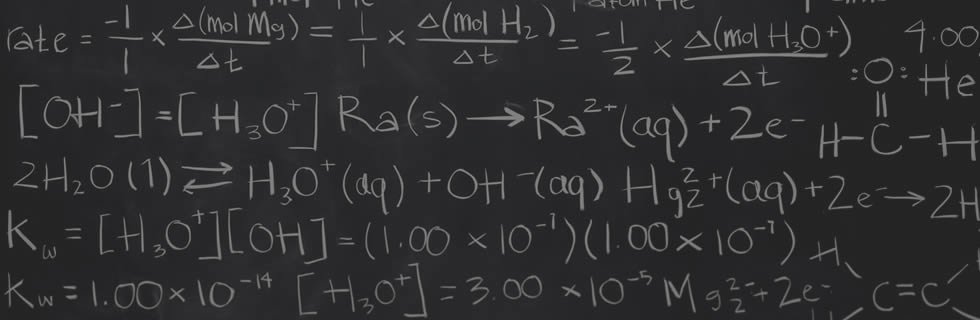 rate = -1/1 × Δ(mol Mg)/Δt = 1/1 × Δ(mol H₂)/Δt = -1/2 × Δ(mol H₃O⁺)/Δt 4.00
:O: He
[OH⁻] = [H₃O⁺] Ra(s) → Ra²⁺(aq) + 2e⁻ H-C-H
2H₂O(1) ⇌ H₃O⁺(aq) + OH⁻(aq) Hg₂²⁺(aq) + 2e⁻ → 2H
Kw = [H₃O⁺][OH] = (1.00 × 10⁻⁷)(1.00 × 10⁻⁷) H
Kw = 1.00 × 10⁻¹⁴ [H₃O⁺] = 3.00 × 10⁻⁵ Mg₂²⁻+ 2e⁻ C=C